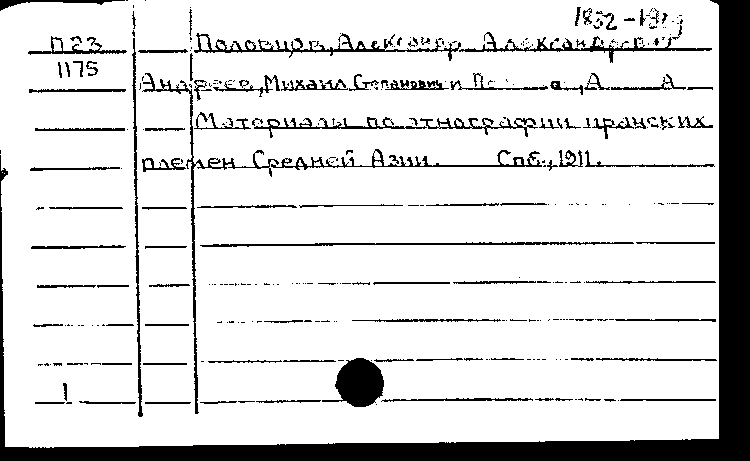 П23 Половцов, Александр Александрович
1175 Андреев, Михаил Степанович и А А
Материалы по этнографии иранских
племен Средней Азии. Спб., 1911.
1